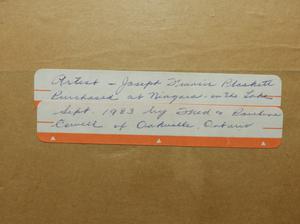 Artist – Joseph Francis Plaskett
Purchased at Niagara-on the Lake
Sept. 1983 by Fred & Pauline
Cowell of Oakville, Ontario